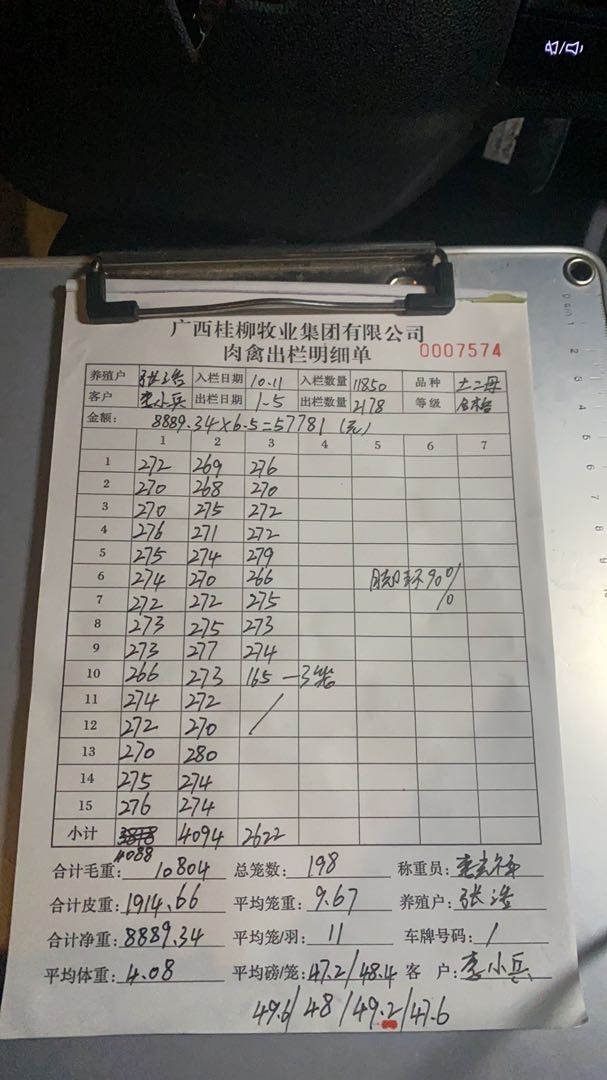 广西桂柳牧业集团有限公司
肉禽出栏明细单 0007574
养殖户 张浩 入栏日期 10.11 入栏数量 11850 品种 土二母
客户 李小兵 出栏日期 1-5 出栏数量 2178 等级 合格
金额: 8889.34×6.5=57781（元）
1 2 3 4 5 6 7
1 272 269 276
2 270 268 270
3 270 275 272
4 276 271 272
5 275 274 279
6 274 270 266 90%
7 272 272 275
8 273 275 273
9 273 277 274
10 266 273 165 — 3笼
11 274 272 /
12 272 270
13 270 280
14 275 274
15 276 274
小计 4088 4094 2622
合计毛重: 10804 总笼数: 198 称重员:
合计皮重: 1914.66 平均笼重: 9.67 养殖户: 张浩
合计净重: 8889.34 平均笼/羽: 11 车牌号码: /
平均体重: 4.08 平均磅/笼: 47.2/48.4 客户: 李小兵
49.6/48/49.2/47.6